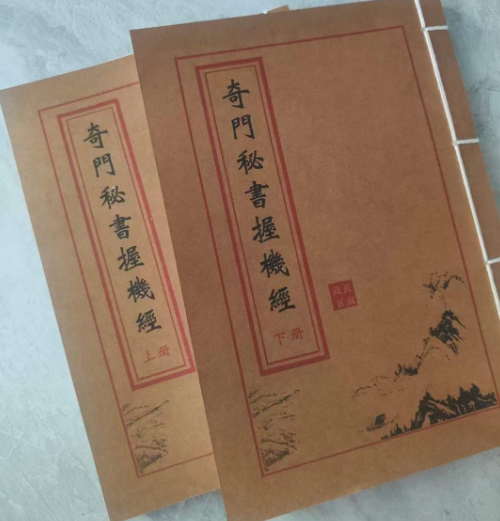 奇門秘書握機經
上册
奇門秘書握機經
下册